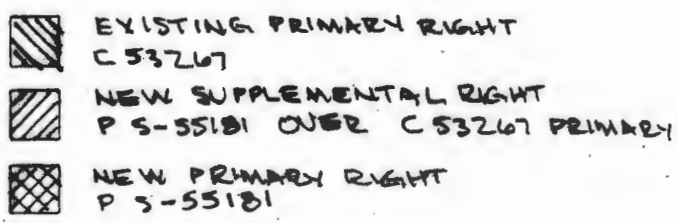 EXISTING PRIMARY RIGHT
C 53267
NEW SUPPLEMENTAL RIGHT
P S-55181 OVER C 53267 PRIMARY
NEW PRIMARY RIGHT
P S-55181